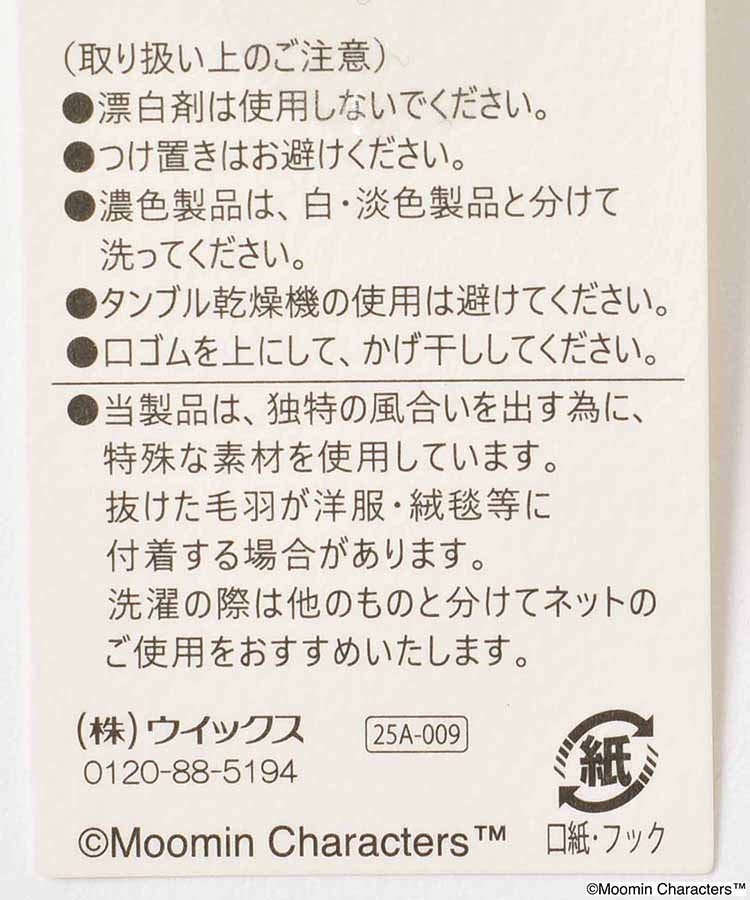 (取り扱い上のご注意)
●漂白剤は使用しないでください。
●つけ置きはお避けください。
●濃色製品は、白・淡色製品と分けて
洗ってください。
●タンブル乾燥機の使用は避けてください。
●口ゴムを上にして、かげ干ししてください。
●当製品は、独特の風合いを出す為に、
特殊な素材を使用しています。
抜けた毛羽が洋服・絨毯等に
付着する場合があります。
洗濯の際は他のものと分けてネットの
ご使用をおすすめいたします。
(株)ウイックス
25A-009
0120-88-5194
紙
口紙・フック
©Moomin Characters™
©Moomin Characters™